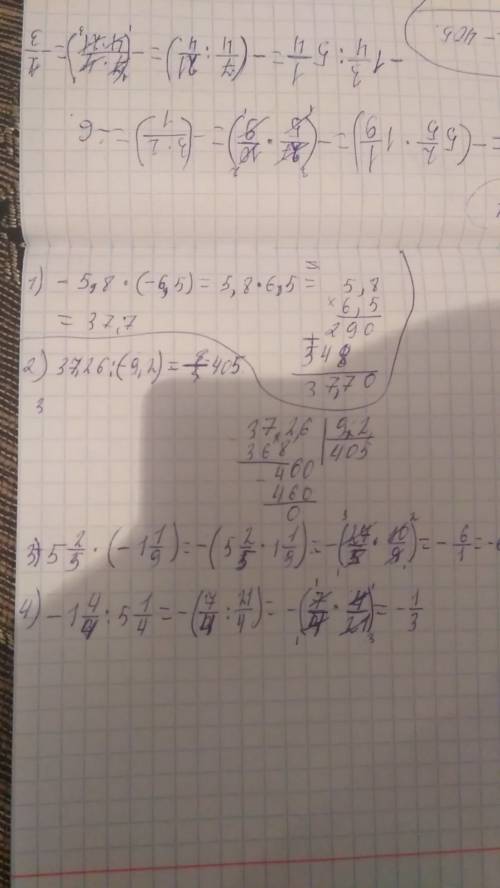 - 405
- 1 3/4 : 5 1/4 = - (7/4 : 21/4) = - (7/4 · 4/21) = - 1/3
= - (5 2/5 · 1 1/9) = - (27/5 · 10/9) = - (3·2/1) = - 6
1) - 5,8 · (-6,5) = 5,8 · 6,5 =
= 37,7
5,8
× 6,5
290
+ 348
37,70
2) 37,26 : (-9,2) = 405
3
37,26 | 9,2
368 | 405
- 460
460
0
3) 5 2/5 · (-1 1/9) = - (5 2/5 · 1 1/9) = - (27/5 · 10/9) = - 6/1 = -6
4) - 1 4/4 : 5 1/4 = - (7/4 : 21/4) = - (7/4 · 4/21) = - 1/3